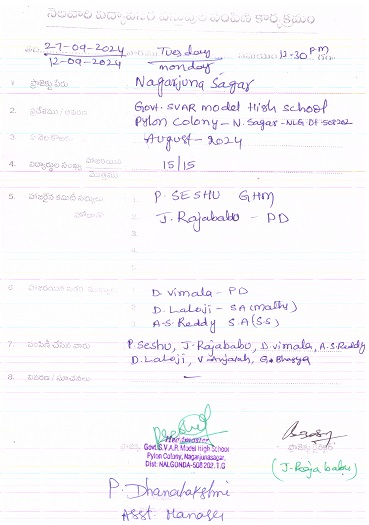 నెలవారి విద్యార్థినీ వస్తువుల పంపిణీ కార్యక్రమం
తేది. 27-09-2024 వారము Tuesday సమయం 12-30 PM
12-09-2024 monday
1. ప్రాజెక్టు పేరు Nagarjuna Sagar
2. ప్రదేశము / ఆవరణ Govt. SVAR model High school
Pylon Colony - N. Sagar - NLG. Dt. 508202
3. ఏ నెల కొరకు August - 2024
4. విద్యార్థుల సంఖ్య హాజరయిన 15/15
మొత్తము
5. హాజరైన కమిటీ సభ్యులు 1. P. SESHU GHM
2. J. Rajababu - PD
3.
4.
1.
6. హాజరయిన ఇతర 1. D. Vimala - PD
2. D. Laloji - SA (maths)
3. A.S. Reddy S.A (S.S)
7. పంపిణీ చేసిన వారు P. Seshu, J. Rajababu, D. vimala, A.S. Reddy
D. Laloji, V. Anjaiah, G. Bhagya
8. వివరణ / సూచనలు —
Headmaster
Govt. S.V.A.R. Model High School
Pylon Colony, Nagarjunasagar,
Dist: NALGONDA-508 202. T.G
ప్రాజెక్టు డైరెక్టర్
(J. Raja babu)
P. Dhanalakshmi
Asst. Manager